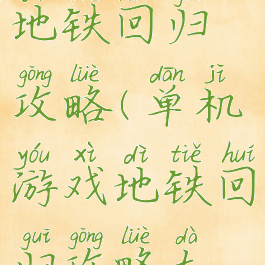 地铁回归
gōng lüè dān jī
攻略(单机
yóu xì dì tiě huí
游戏地铁回
guī gōng lüè dà